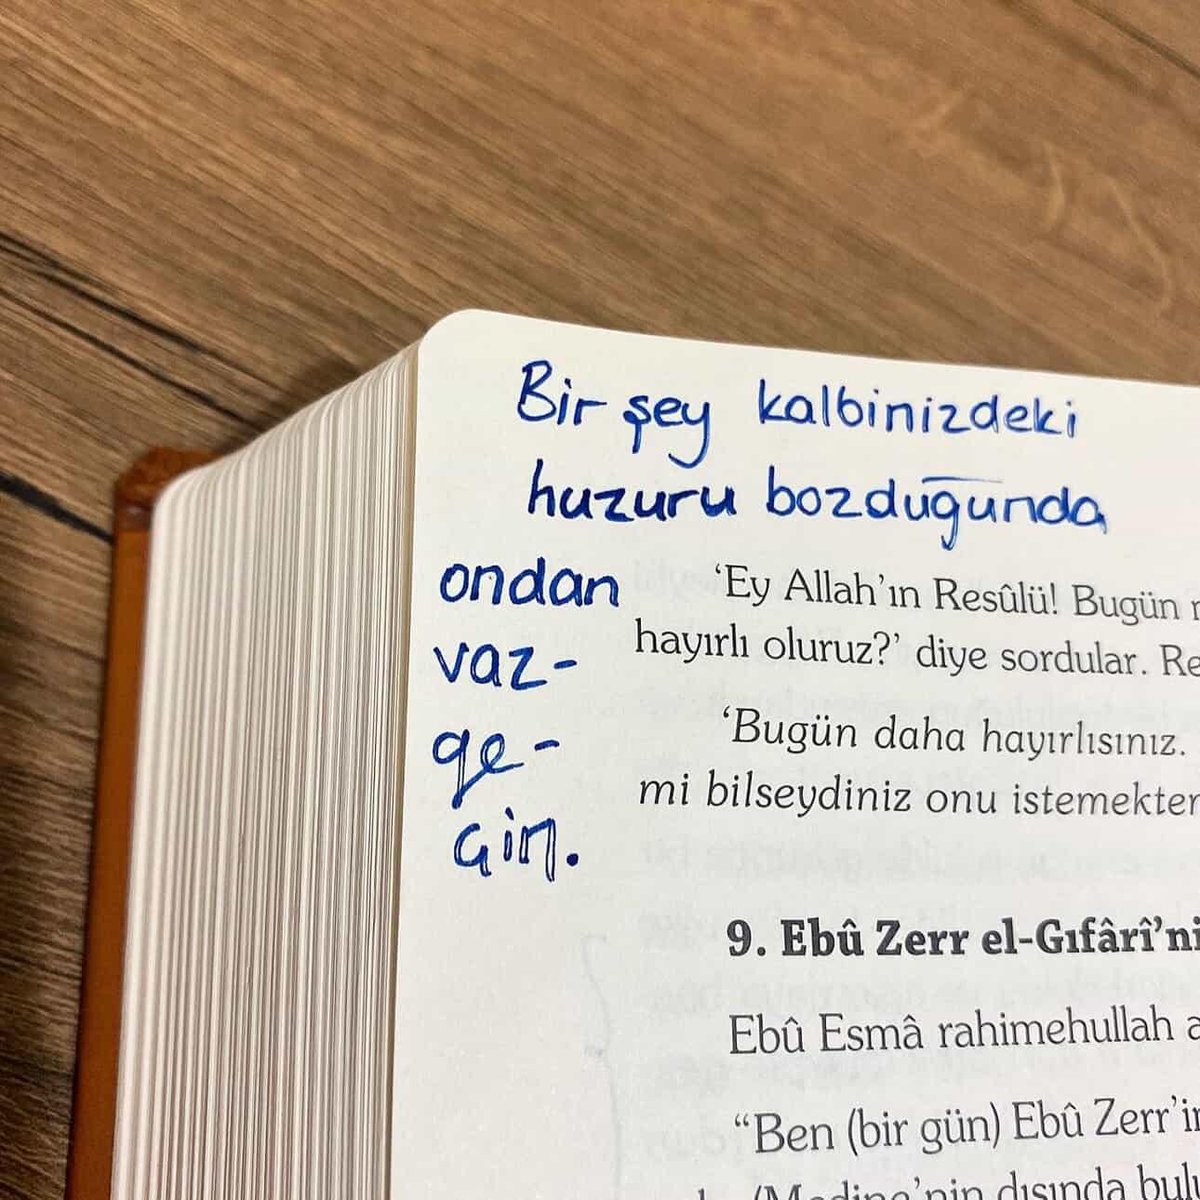 Bir şey kalbinizdeki
huzuru bozduğunda
ondan
vaz-
ge-
çin.
'Ey Allah'ın Resûlü! Bugün
hayırlı oluruz?' diye sordular. Re
'Bugün daha hayırlısınız.
mi bilseydiniz onu istemekten
9. Ebû Zerr el-Gıfârî'ni
Ebû Esmâ rahimehullah a
"Ben (bir gün) Ebû Zerr'in
dışında bulu